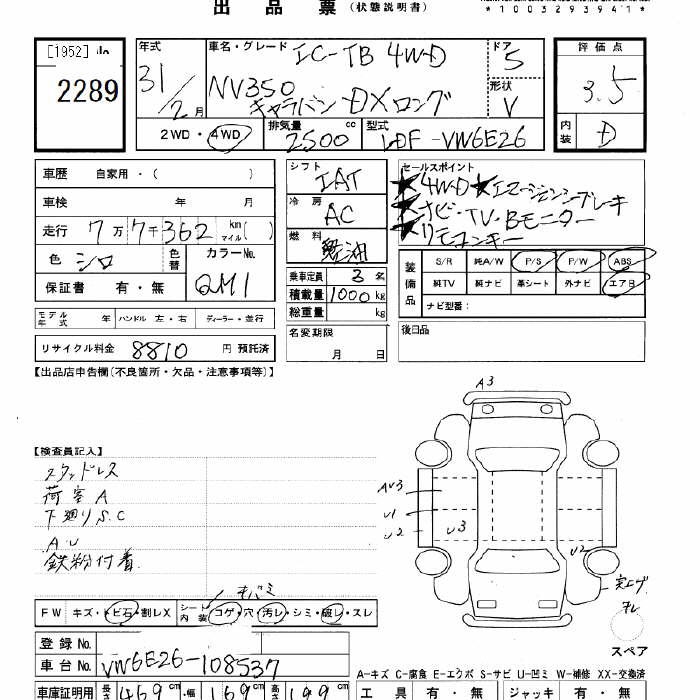 出 品 票 (状態説明書)
*1003293941*
[1952]
2289
年式 31/2月
車名・グレード IC-TB 4WD
NV350
キャラバン DXロング
ドア 5
形状 V
評価点 3.5
内装 D
2WD・4WD
排気量 2500 cc
型式 LDF-VW6E26
車歴 自家用・( )
車検 年 月
走行 7万7千362 km マイル( )
色 シロ 色替
カラーNo. QM1
保証書 有・無
シフト IAT
冷房 AC
燃料 軽油
乗車定員 3名
積載量 1000kg
総重量 kg
セールスポイント
★4WD★エマージェンシーブレーキ
★ナビ・TV・Bモニター
★リモコンキー
装備品 S/R 純A/W P/S P/W ABS
純TV 純ナビ 革シート 外ナビ エアB
ナビ型番:
モデル年式 年 ハンドル 左・右 ディーラー・並行
名変期限 月 日
後日品
リサイクル料金 8810 円 預託済
【出品店申告欄(不良箇所・欠品・注意事項等)】
A3
【検査員記入】
スタッドレス
荷室A
下廻りS.C
AU
鉄粉付着
AU3
U1
U2
U3
U2
FW キズ・トビ石・割レX
シート内装 コゲ・穴・汚レ・シミ・破レ・スレ
スペア
登録No.
車台No. VW6E26-108537
A-キズ C-腐食 E-エクボ S-サビ U-凹ミ W-補修 XX-交換済
車庫証明用 長さ 469cm 幅 169cm 高さ 199cm
工具 有・無 ジャッキ 有・無